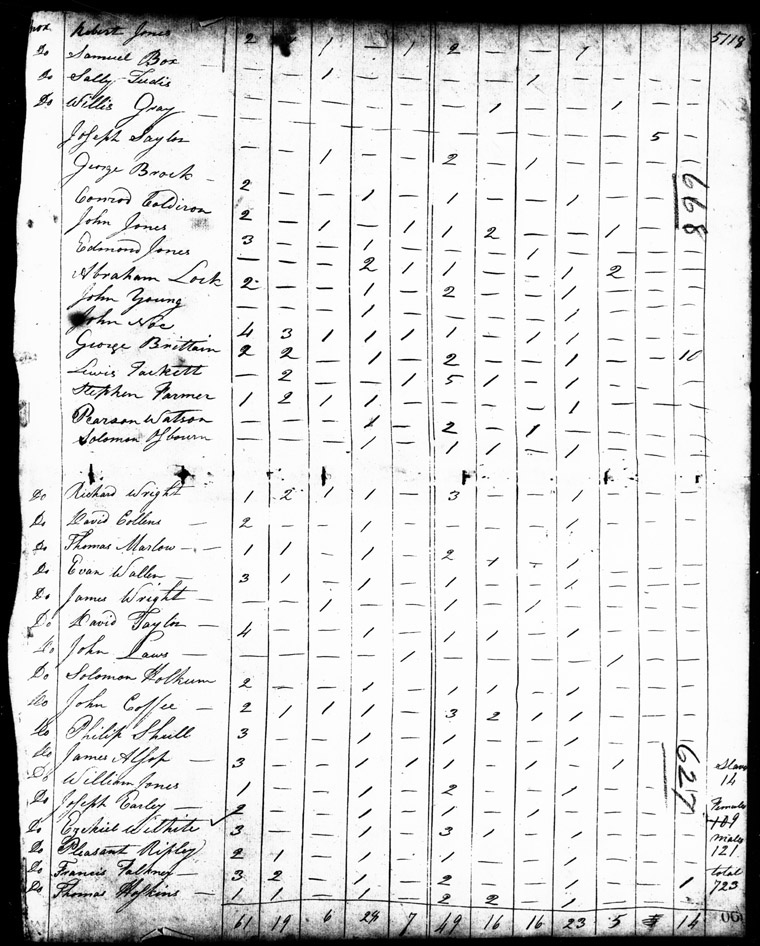 Robert Jones 2 1 — 1 2 — — 1 5118
Do Samuel Box — — 1 — — — — 1 — — — —
Do Sally — — — — — — 1 — — 1 — —
Do Willis Gray
Joseph Saylor — — 1 — — 2 — 1 — — 5 —
George Brock 2 — — 1 — 1 — — 1 — — —
Conrod Coldiron 2 — 1 — 1 1 2 — — 1 — —
John Jones 3 — — 1 — — — 1 — — — —
Edmond Jones — — — 2 1 1 — — 1 2 — —
Abraham Lock 2 — — 1 — 2 — — 1 — — —
John Young — — — 1 — — — — 1 — — —
John Noe 4 3 1 1 1 1 — 1 1 — — —
George Brittain 2 2 — 1 — 2 — — 1 — — 10
Lewis Fackett — 2 — — 1 5 1 — 1 — —
Stephen Farmer 1 2 1 1 — — — — 1 — —
Pearson Watson — — — 1 — 2 — 1 — — — —
Solomon Osbourn — — — 1 — 1 1 1 1 — — —
668
Do Richard Wright 1 2 1 1 — 3 — — 1 — — —
Do David Collins 2 — — 1 — — — — 1 — — —
Do Thomas Marlow 1 1 — 1 — 2 1 — 1 — — —
Do Evan Wallen 3 1 — 1 — 1 — — 1 — — —
Do James Wright — — 1 — — 1 — 1 — — — —
Do David Taylor 4 — — 1 — 1 1 — 1 — — —
Do John Laws — — — — 1 — — — — 1 — —
Do Solomon Holkum 2 — — 1 — 1 1 — 1 — — —
Do John Coffee 2 1 1 1 — 3 2 1 1 — — —
Do Philip Shull 3 — — 1 — 1 — — 1 — — —
Do James Alsop 3 — — 1 1 1 1 — 1 1 — —
Do William Jones 1 — — 1 — 2 — — 1 — — —
Do Joseph Earley 2 — — 1 — 1 — — 1 — — —
Do Ezekiel Wilhite 3 — — 1 — 3 1 — 1 — — —
Do Pleasant Ripley 2 1 — 1 — 1 — — 1 — — —
Do Francis Falkner 3 2 — 1 — 2 — — 1 — — 1
Do Thomas Hopkins 1 1 — 1 — 2 2 — 1 — — —
61 19 6 28 7 49 16 16 23 5 5 14
627
Slaves
14
Females
109
Males
121
total
723